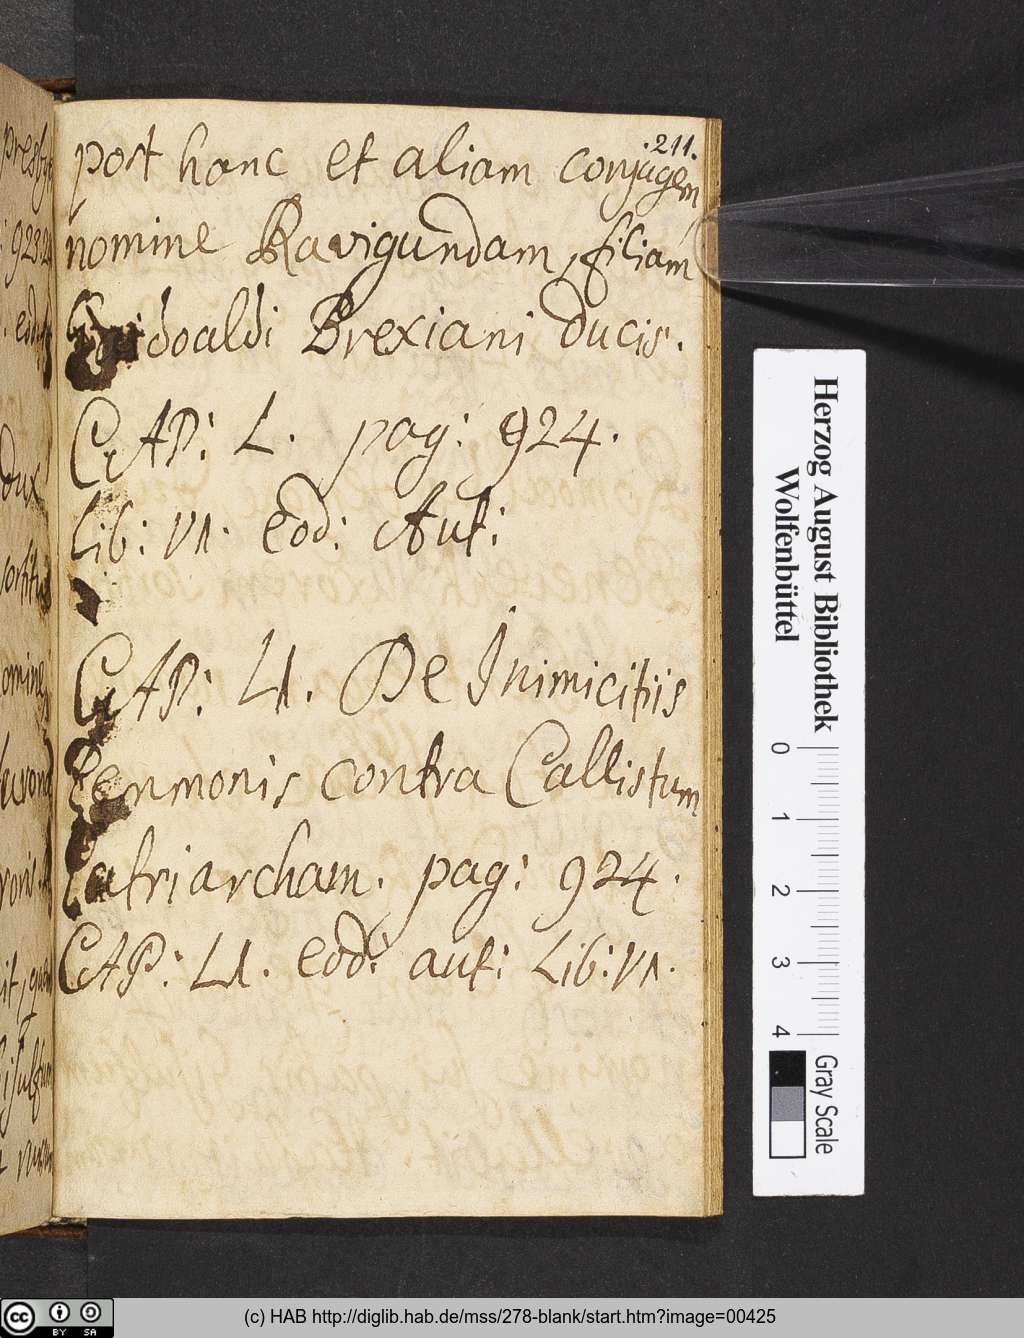 .211.
post hanc et aliam conjugem
nomine Ravigundam, filiam
doaldi Brexiani ducis.
CAP: L. pag: 924.
Lib: VI. eod: Aut:
CAP: LI. De Inimicitiis
Pemmonis contra Callistum
Patriarcham. pag: 924.
CAP: LI. eod: aut: Lib: VI.
Herzog August Bibliothek
Wolfenbüttel
0 1 2 3 4
Gray Scale
cc BY SA
(c) HAB http://diglib.hab.de/mss/278-blank/start.htm?image=00425